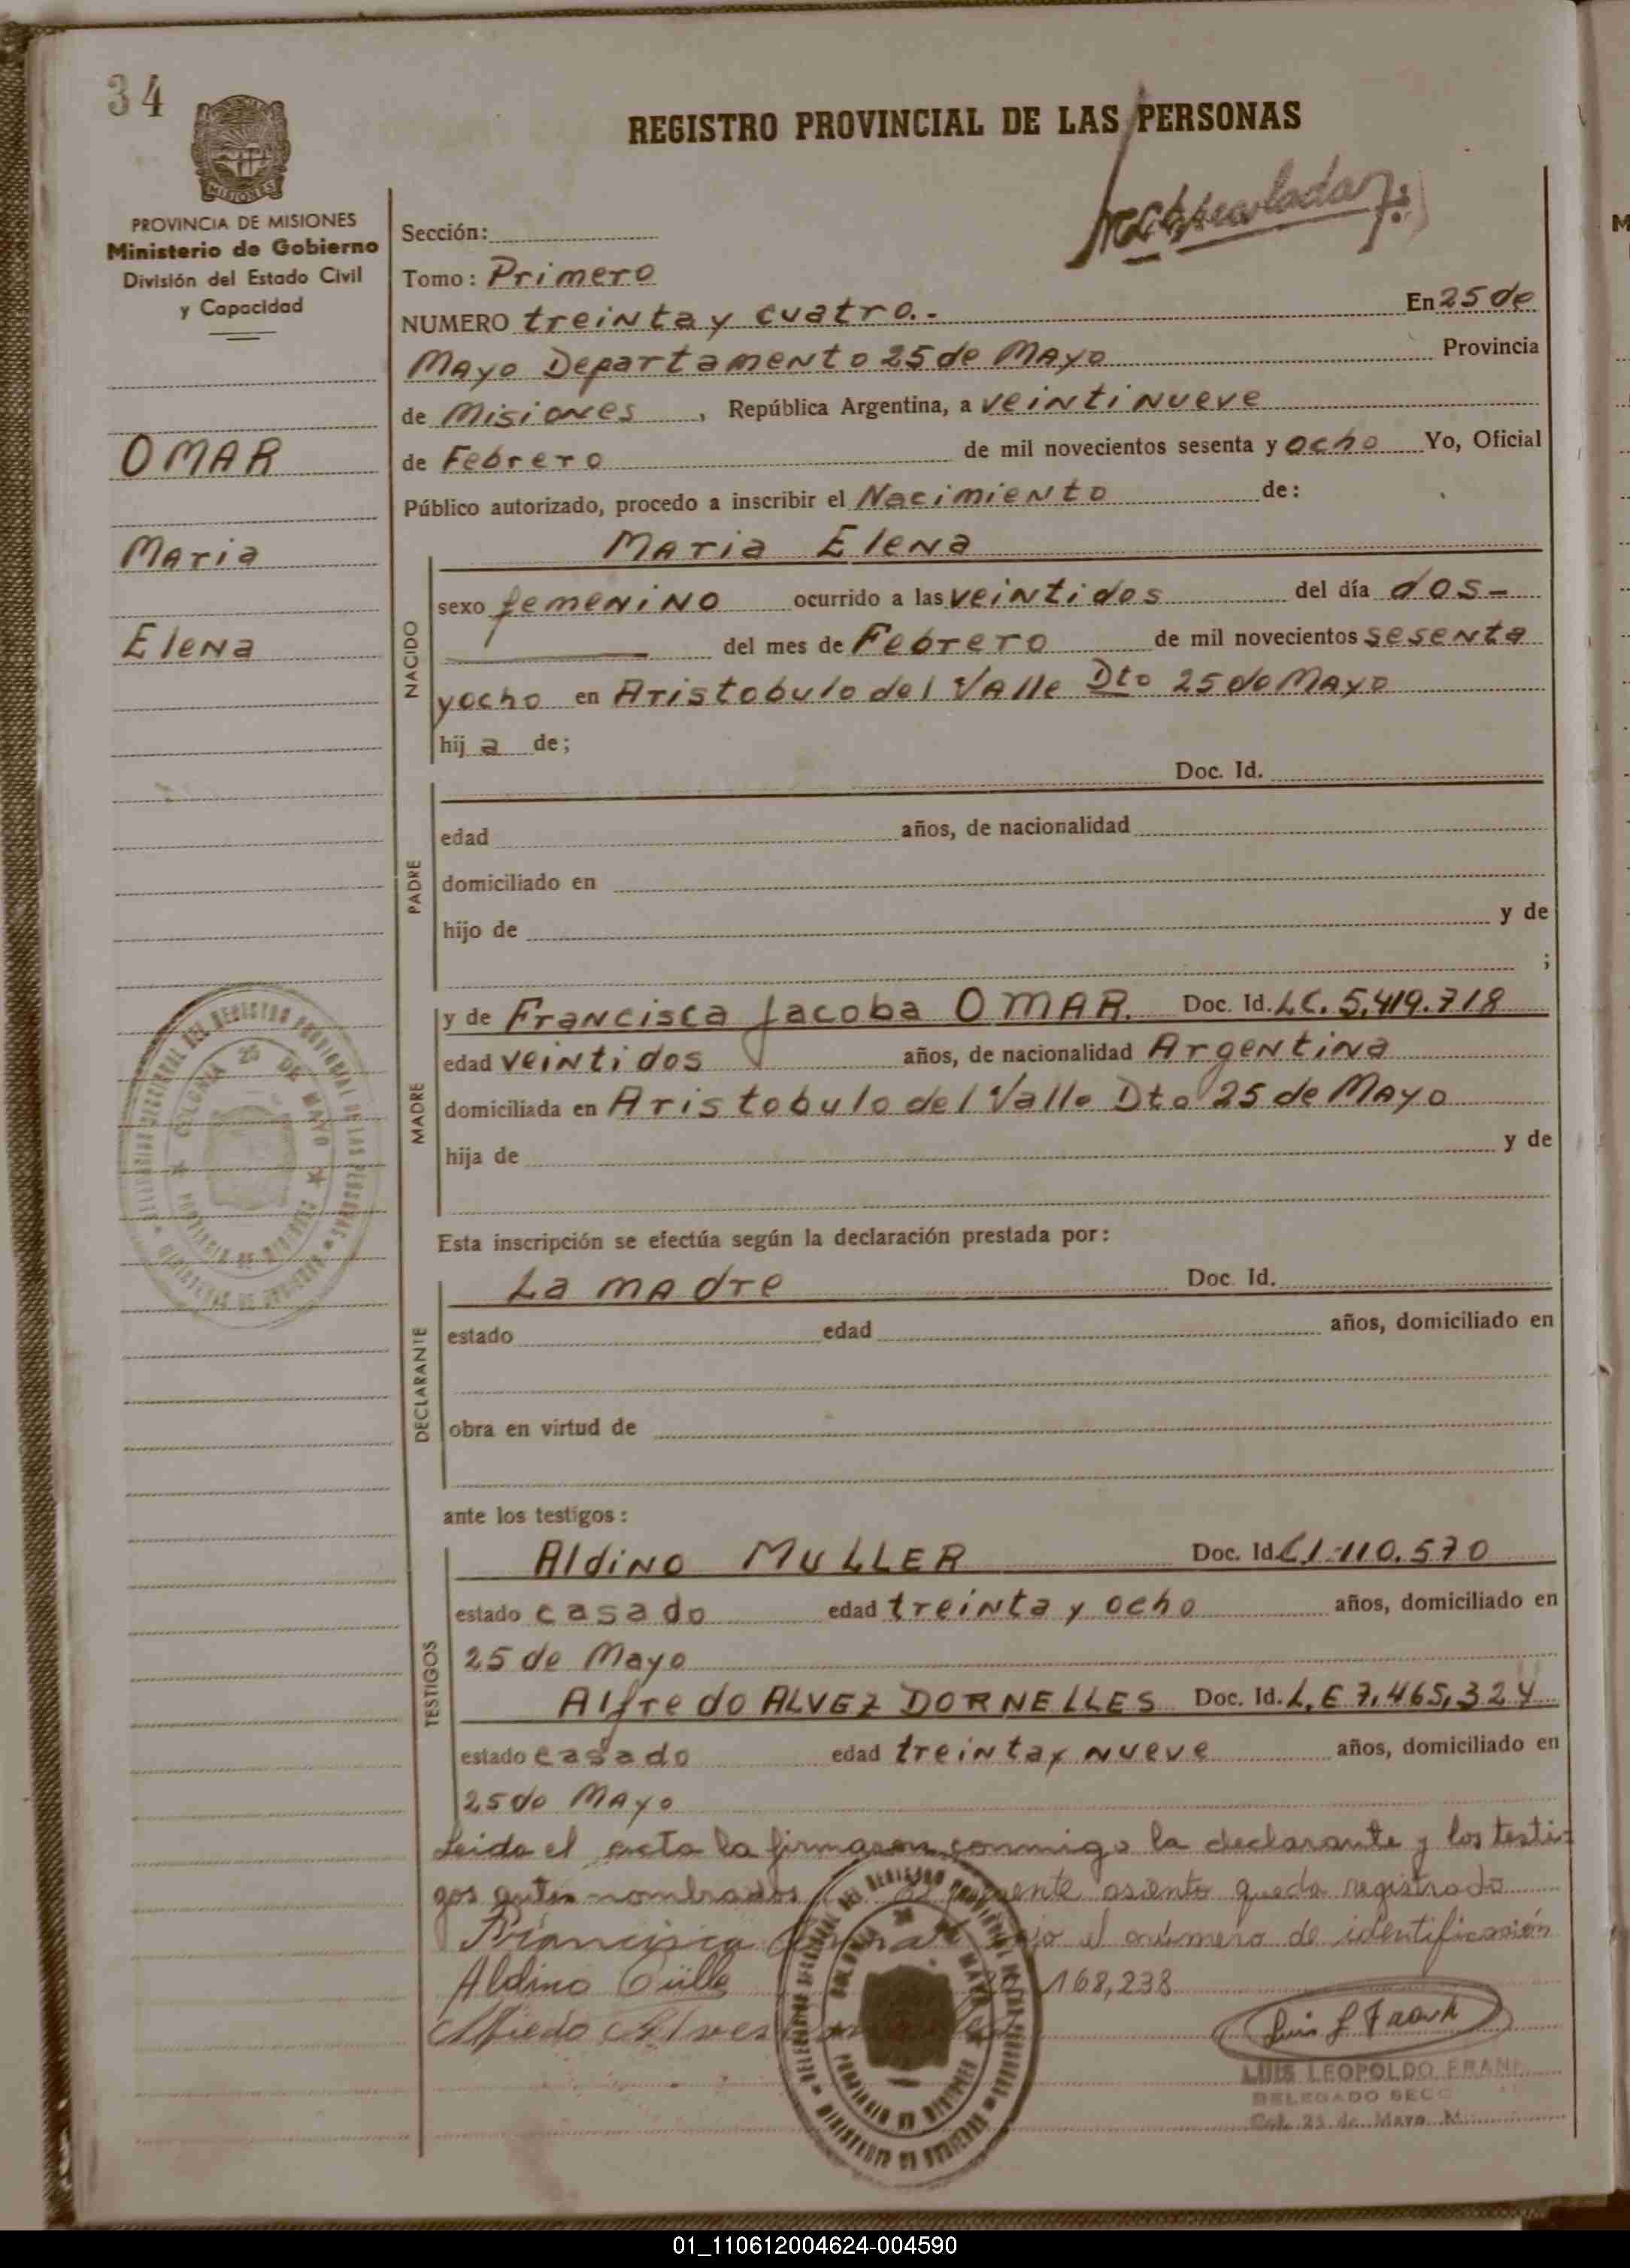 34
MISIONES
PROVINCIA DE MISIONES
Ministerio de Gobierno
División del Estado Civil
y Capacidad
REGISTRO PROVINCIAL DE LAS PERSONAS
Sección:
Tomo: Primero
NUMERO treinta y cuatro.- En 25 de
Mayo Departamento 25 de Mayo Provincia
de Misiones, República Argentina, a veintinueve
de Febrero de mil novecientos sesenta y ocho Yo, Oficial
Público autorizado, procedo a inscribir el Nacimiento de:
OMAR
Maria
Elena
NACIDO
Maria Elena
sexo femenino ocurrido a las veintidos del día dos-
del mes de Febrero de mil novecientos sesenta
y ocho en Aristobulo del Valle Dto 25 de Mayo
hij a de;
PADRE
Doc. Id.
edad años, de nacionalidad
domiciliado en
hijo de y de
;
MADRE
y de Francisca Jacoba OMAR. Doc. Id. L.C. 5.419.718
edad veintidos años, de nacionalidad Argentina
domiciliada en Aristobulo del Valle Dto 25 de Mayo
hija de y de
Esta inscripción se efectúa según la declaración prestada por:
DECLARANTE
La madre Doc. Id.
estado edad años, domiciliado en
obra en virtud de
ante los testigos:
TESTIGOS
Aldino MULLER Doc. Id. C.I. 110.570
estado casado edad treinta y ocho años, domiciliado en
25 de Mayo
Alfredo ALVEZ DORNELLES Doc. Id. L.E 7.465.324
estado casado edad treinta y nueve años, domiciliado en
25 de Mayo
Leida el acta la firmaron conmigo la declarante y los testi-
gos antes nombrados. El presente asiento queda registrado
Francisca Omar bajo el número de identificación
Aldino 168,238
Alfredo Alves
Luis L Frank
LUIS LEOPOLDO FRANK
DELEGADO SECC
Col. 25 de Mayo M
COLONIA 25 DE MAYO
PROVINCIA DE MISIONES
01_110612004624-004590